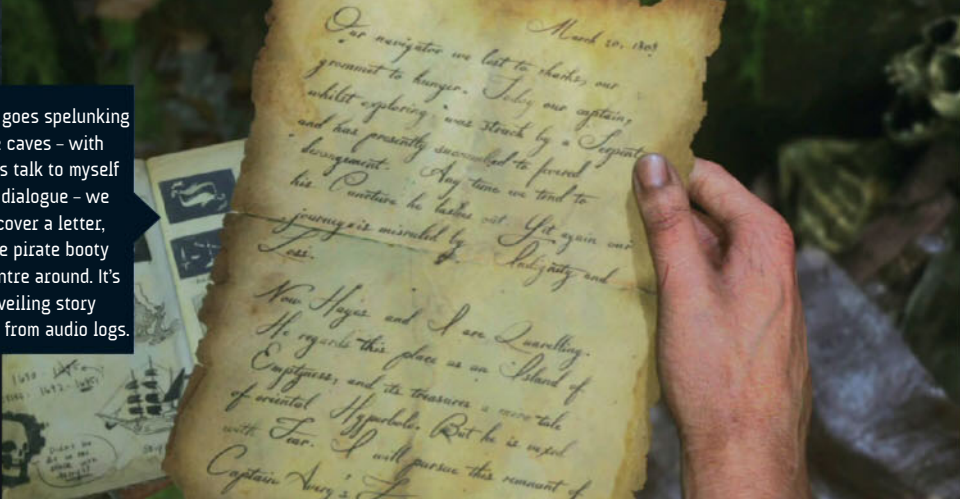 goes spelunking
caves – with
s talk to myself
dialogue – we
cover a letter,
e pirate booty
ntre around. It's
veiling story
from audio logs.
March 20,
Our navigator we lost to sharks, our
grommet to hunger. Today our captain,
whilst exploring, was struck by a Serpent
and has presently succumbed to fevered
derangement. Any time we tend to
his Canture he lashes out. Yet again our
journey is misruled by Indignity and
Loss.
Now Hayes and I are Quarelling.
He regards this place as an Island of
Emptyness, and its treasures a mere tale
of oriental Hyperbole. But he is vexed
with Fear. I will pursue this remnant of
Captain Avery's
1690
1692-1695
Didn't